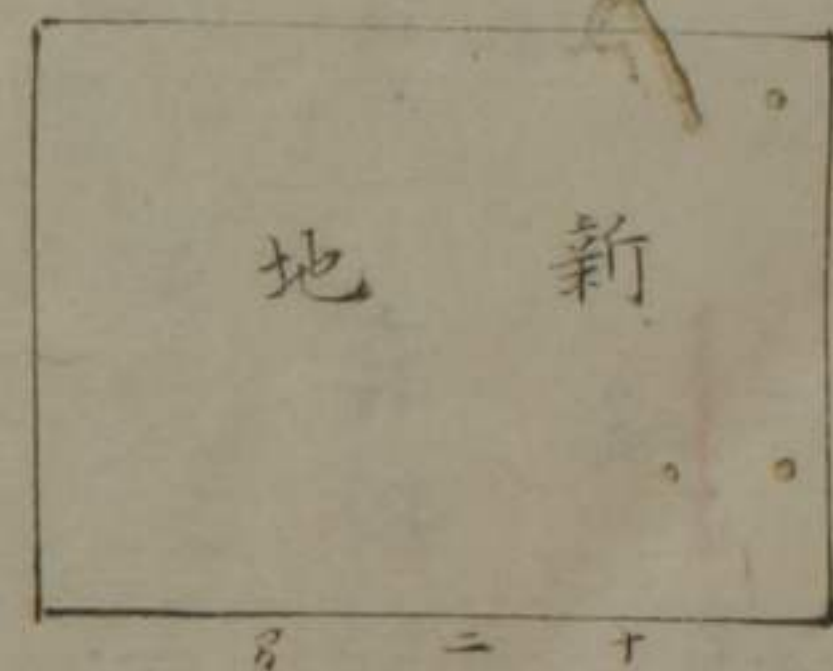 新地
十二